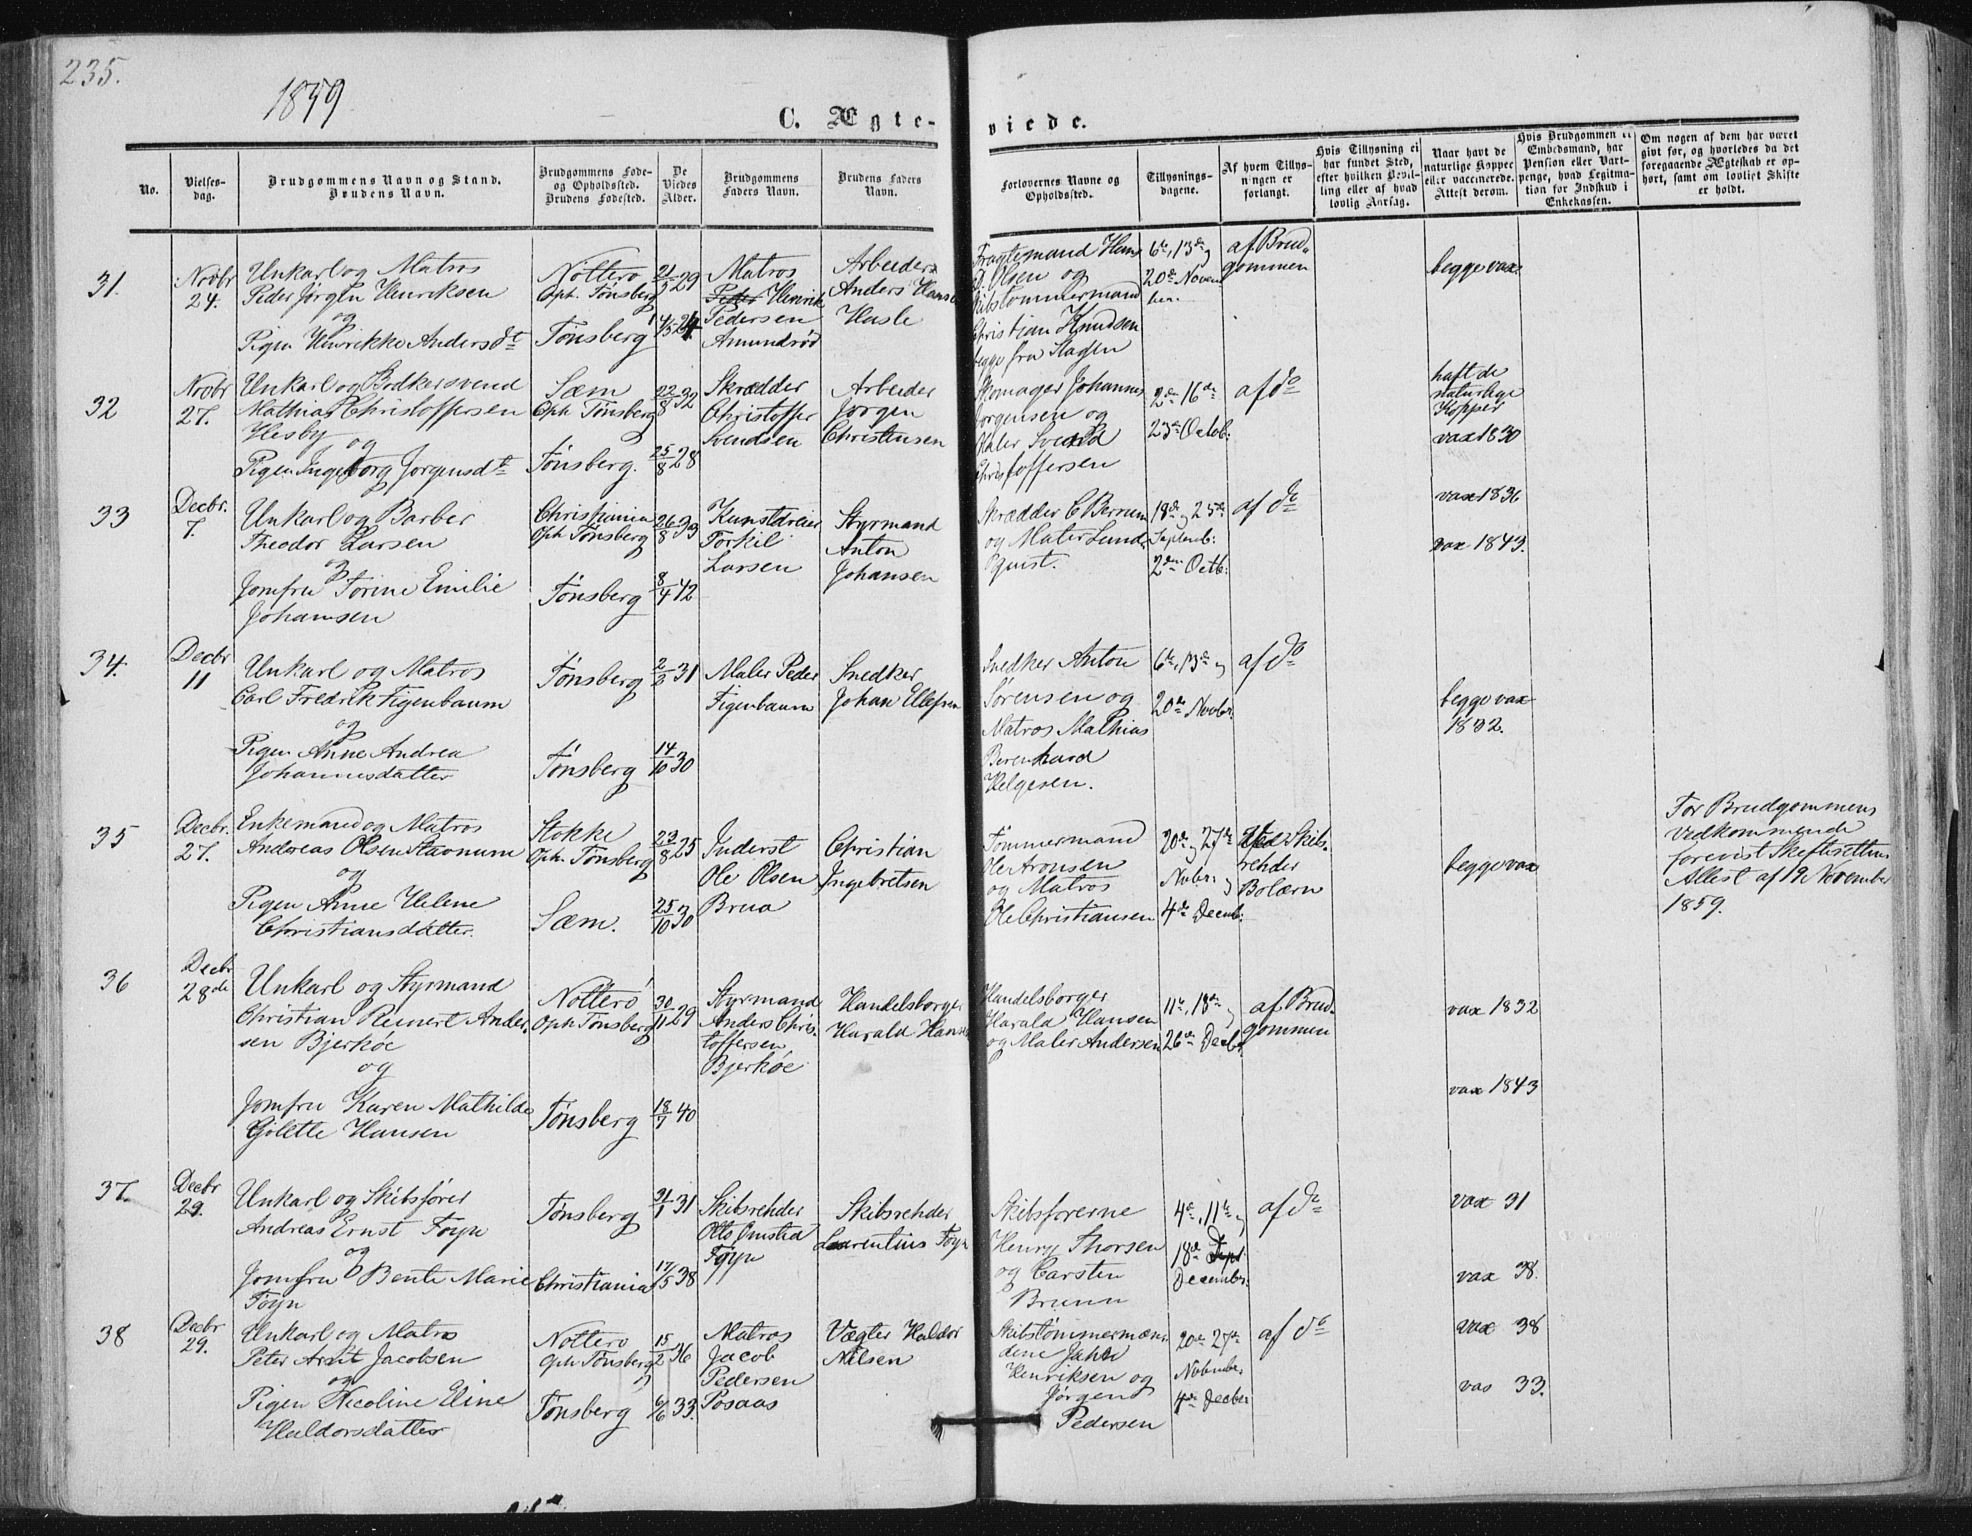 235.
1859
C. Ægte-
viede.
No.
Vielses-
dag.
Brudgommens Navn og Stand.
Brudens Navn.
Brudgommens Føde-
og Opholdssted.
Brudens Fødested.
De
Viedes
Alder.
Brudgommens
Faders Navn.
Brudens Faders
Navn.
Forlovernes Navne og
Opholdssted.
Tillysnings-
dagene.
Af hvem Tillys-
ningen er
forlangt.
Hvis Tillysning ei
har fundet Sted,
efter hvilken Bevil-
ling eller af hvad
lovlig Aarsag.
Naar havt de
naturlige Kopper
eller vaccinerede.
Attest derom.
Hvis Brudgommen er
Embedsmand, har
Pension eller Vart-
penge, hvad Legitima-
tion for Indskud i
Enkekassen.
Om nogen af dem har været
givt før, og hvorledes da det
foregaaende Ægteskab er op-
hørt, samt om lovligt Skifte
er holdt.
31.
Novbr
24.
Unkarl og Matros
Peder Jørgen Henriksen
og
Pigen Henrikke Andersdt
Nøtterø
Oph. Tønsberg
Tønsberg
21/5 29
4/5 24
Matros
Peder Henrik
Pedersen
Amundrød
Arbeider
Anders Hansen
Hasle
Fragtemand Hans
D. Olsen og
Skibstømmermand
Christian Knudsen
begge fra Slagen
6te, 13de og
20de Novem
ber
af Brud-
gommen
begge vax
32
Novbr
27.
Unkarl og Bødkersvend
Mathias Christoffersen
Hesby og
Pigen Ingeborg Jørgensdt
Sæm
Oph Tønsberg
Tønsberg.
22/8 32
25/8 28
Skrædder
Christoffer
Svendsen
Arbeider
Jørgen
Christensen
Skomager Johannes
Jørgensen og
Maler Svend
Christoffersen
2den 16de
23de Octob:
af do
haft de
naturlige
Kopper
vax 1830
33
Decbr.
7.
Unkarl og Barber
Theodor Larsen
og
Jomfru Torine Emilie
Johansen
Christiania
Oph Tønsberg
Tønsberg
26/8 33
8/4 42
Kunstdreier
Torkil
Larsen
Styrmand
Anton
Johansen
Skrædder C Berrum
og Maler Lund-
quist.
18de og 25de
Septemb:
2den Octb:
af do
vax 1836
vax 1843.
34.
Decbr
11
Unkarl og Matros
Carl Fredrik Figenbaum
og
Pigen Anne Andrea
Johannesdatter
Tønsberg
Tønsberg
31
14/10 30
Maler Peder
Figenbaum
Snedker
Johan Ellefsen
Snedker Anton
Sørensen og
Matros Mathias
Berenhard
Helgesen.
6te, 13de og
20de Novbr.
af do
begge vax
1832.
35
Decbr.
27.
Enkemand og Matros
Andreas Olsen Stavnum
og
Pigen Anne Helene
Christiansdatter.
Stokke
Oph. Tønsberg
Sæm.
23/8 25
25/10 30
Inderst
Ole Olsen
Brua
Christian
Ingebretsen
Tømmermand
Ole Aronsen
og Matros
Ole Christiansen
20de og 27de
Novbr: og
4de Decemb:
Skibs-
rehder
Bolærn
begge vax
For Brudgommens
Vedkommende
forevist Skifterettens
Attest af 19 November
1859.
36
Decbr
28de
Unkarl og Styrmand
Christian Reinert Ander-
sen Bjerkøe
og
Jomfru Karen Mathilde
Gjolette Hansen
Nøtterø
Oph Tønsberg
Tønsberg
30/11 29
18/7 40
Styrmand
Anders Chris-
toffersen
Bjerkøe
Handelsborger
Harald Hansen
Handelsborger
Harald Hansen
og Maler Andersen
11te, 18de og
26de Decbr
af Brud-
gommen
vax 1832
vax 1843
37.
Decbr
29.
Unkarl og Skibsfører
Andreas Ernst Foyn
og
Jomfru Bente Marie
Foyn
Tønsberg
Christiania
31/1 31
17/5 38
Skibsrehder
Otto Omsted
Foyn
Skibsrehder
Laurentius Foyn
Skibsførerne
Henry Thorsen
og Carsten
Bruun
4de, 11te og
18de Sept
Decembr.
af do
vax 31
vax 38.
38
Decbr
29.
Unkarl og Matros
Peter Arnt Jacobsen
og
Pigen Nicoline Eline
Haldorsdatter
Nøtterø
Oph Tønsberg
Tønsberg
15/2 36
6/6 33.
Matros
Jacob
Pedersen
Rosaas
Vægter Haldor
Nilsen
Skibstømmermæn-
dene
Henriksen og
Jørgen
Pedersen
20de 27de
November
4de Decber
af do
vax 38
vax 33.